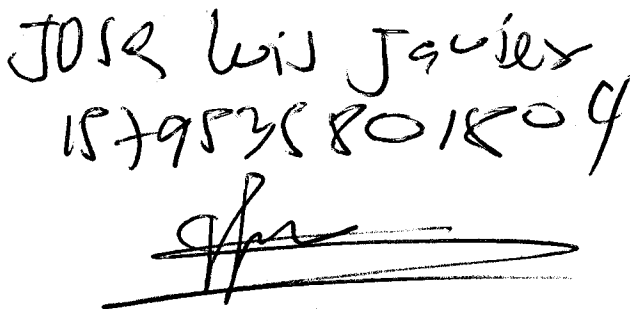 José Luis Javier
1579535801804